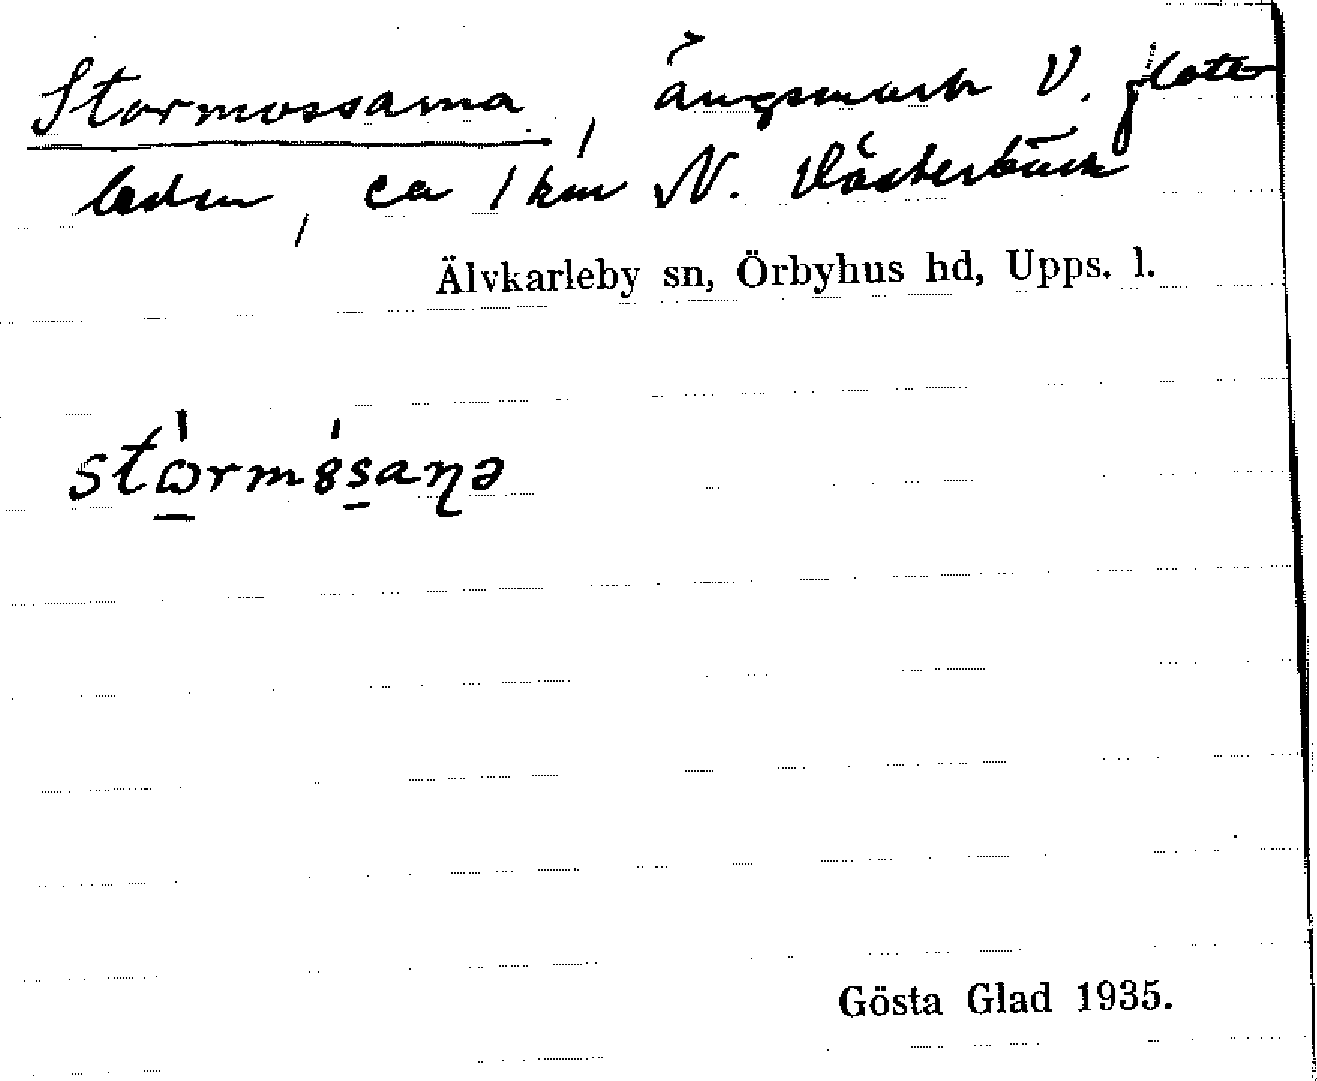 Stormossarna, ängsmark V.
laden, ca 1 km N. Västerbäck
Älvkarleby sn, Örbyhus hd, Upps. l.
stɷrmɞsaɳə
Gösta Glad 1935.